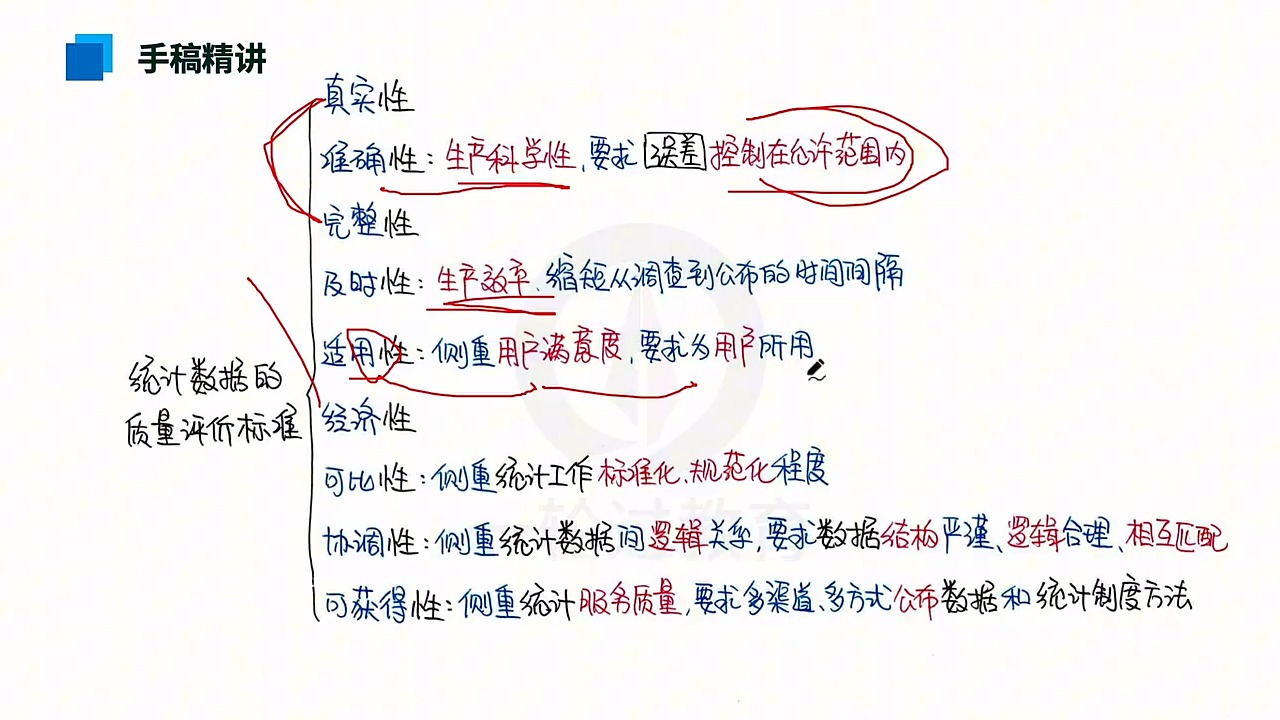 手稿精讲
真实性
准确性：生产科学性，要求误差控制在允许范围内
完整性
及时性：生产效率、缩短从调查到公布的时间间隔
适用性：侧重用户满意度，要求为用户所用
统计数据的
质量评价标准
经济性
可比性：侧重统计工作标准化、规范化程度
协调性：侧重统计数据间逻辑关系，要求数据结构严谨、逻辑合理、相互匹配
可获得性：侧重统计服务质量，要求多渠道、多方式公布数据和统计制度方法
一轮过教育